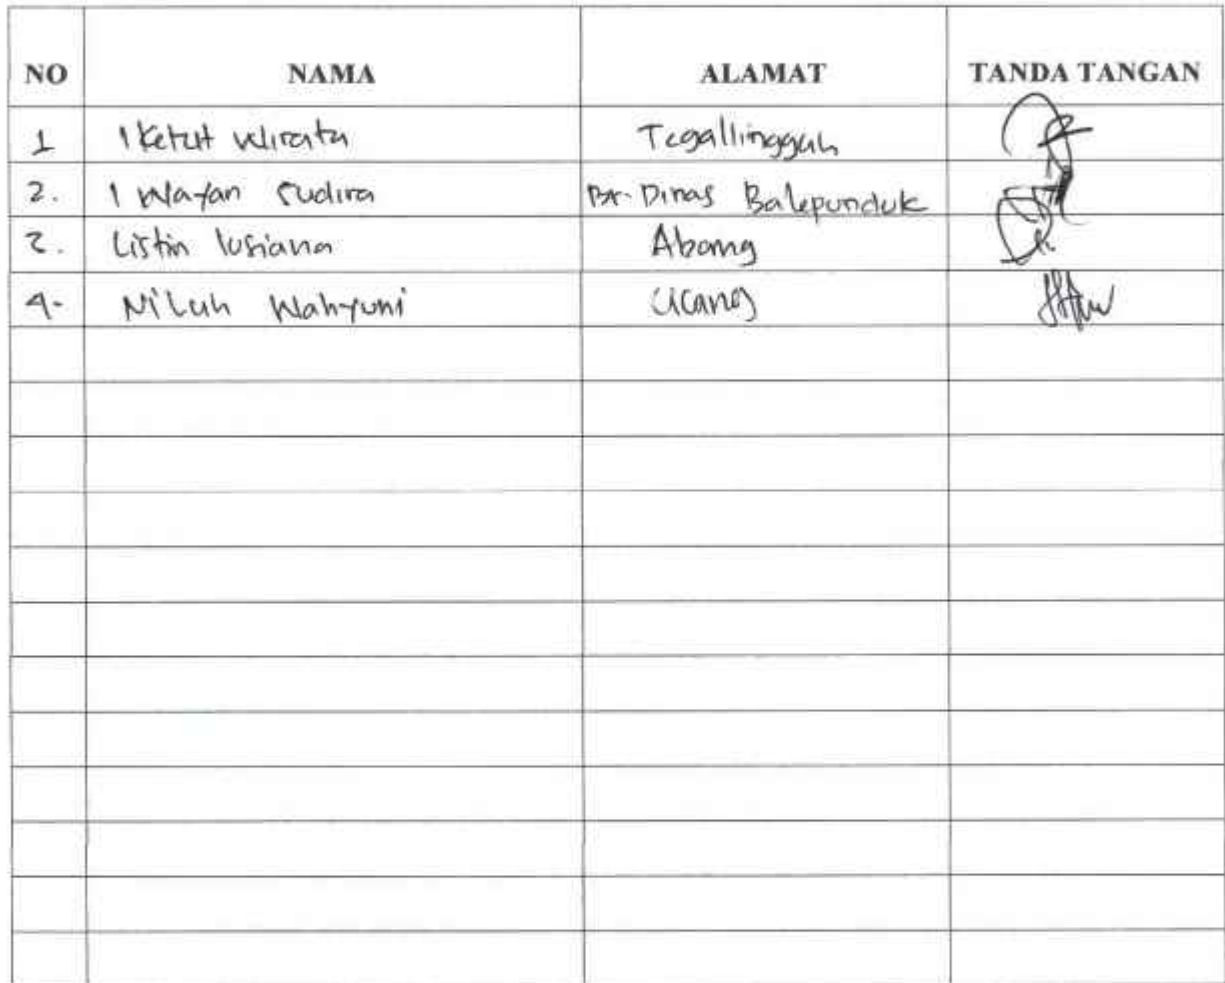 NO NAMA ALAMAT TANDA TANGAN
1 I Ketut Wirata Tegallinggah
2. I Wayan Sudira Br. Dinas Balepunduk
3. Listin lusiana Abang
4. Ni Luh Wahyuni Ucang